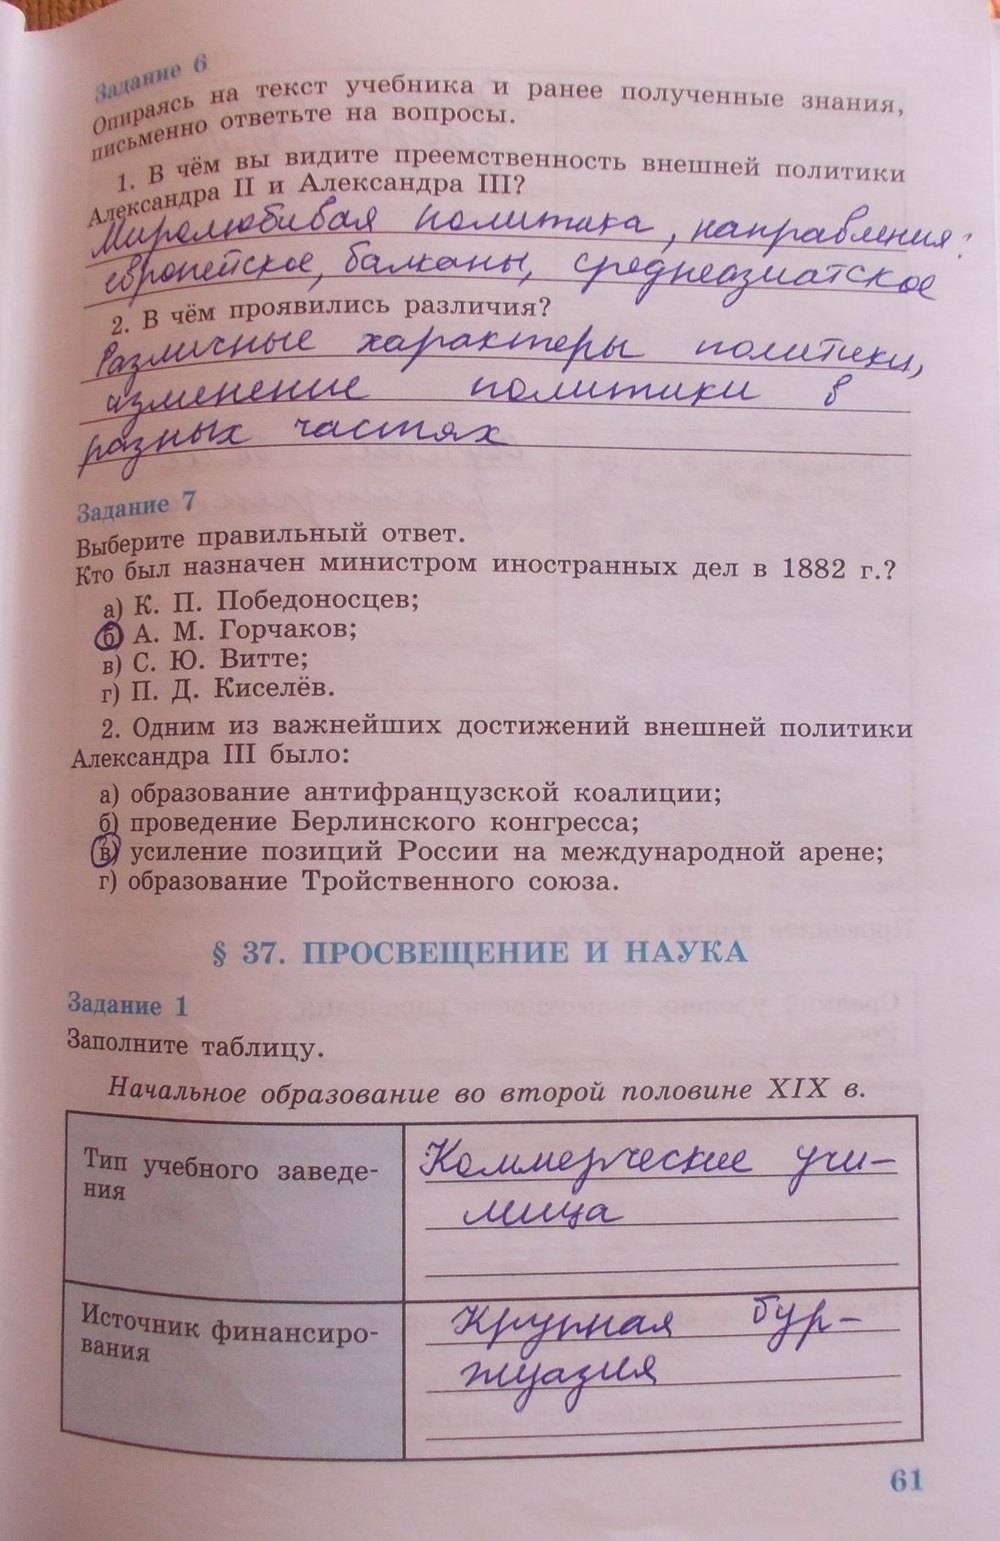 Задание 6
Опираясь на текст учебника и ранее полученные знания,
письменно ответьте на вопросы.
1. В чём вы видите преемственность внешней политики
Александра II и Александра III?
Миролюбивая политика, направления:
европейское, балканы, среднеазиатское
2. В чём проявились различия?
Различные характеры политики,
изменение политики в
разных частях
Задание 7
Выберите правильный ответ.
Кто был назначен министром иностранных дел в 1882 г.?
а) К. П. Победоносцев;
б) А. М. Горчаков;
в) С. Ю. Витте;
г) П. Д. Киселёв.
2. Одним из важнейших достижений внешней политики
Александра III было:
а) образование антифранцузской коалиции;
б) проведение Берлинского конгресса;
в) усиление позиций России на международной арене;
г) образование Тройственного союза.
§ 37. ПРОСВЕЩЕНИЕ И НАУКА
Задание 1
Заполните таблицу.
Начальное образование во второй половине XIX в.
Тип учебного заведе-
ния
Коммерческие учи-
лища
Источник финансиро-
вания
Крупная бур-
жуазия
61